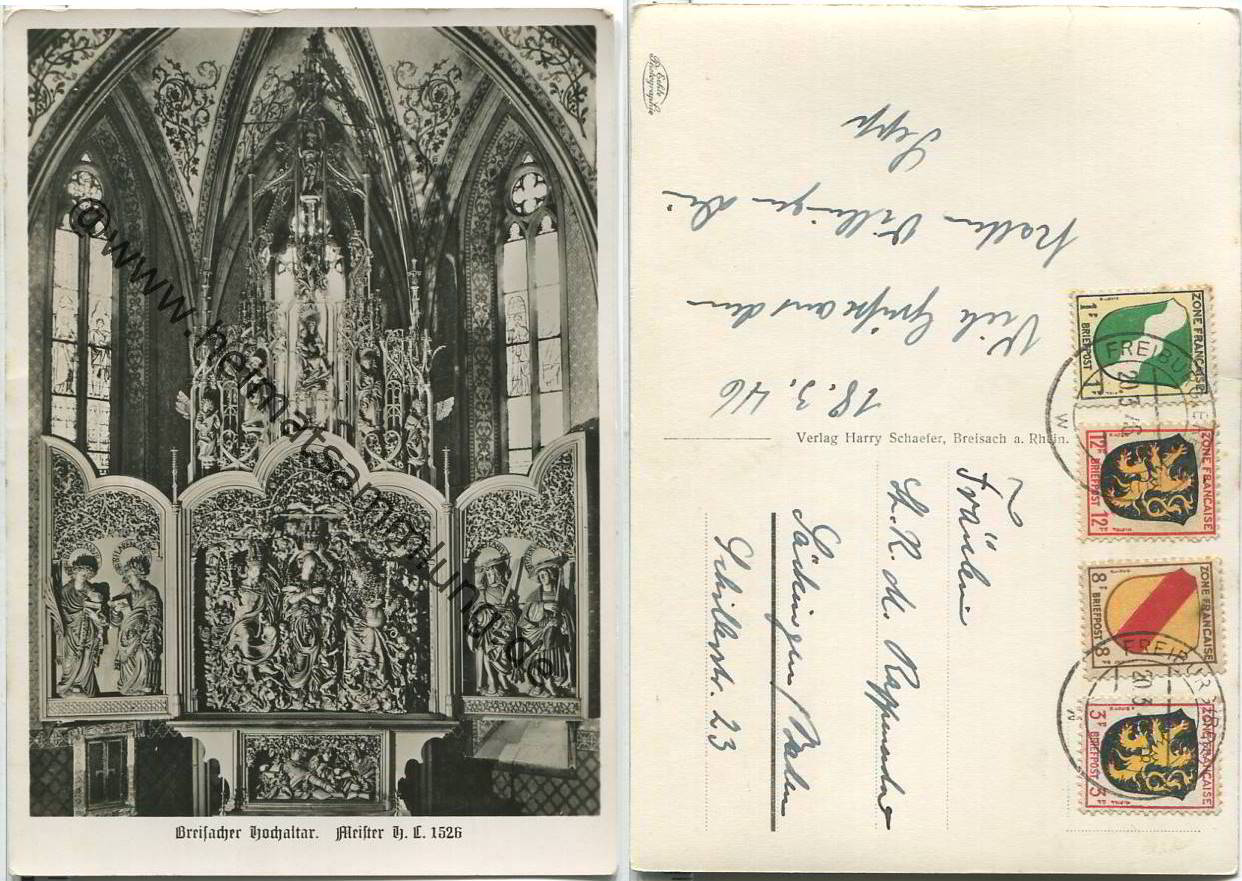 Breisacher Hochaltar. Meister H. L. 1526
@www.heimatsammlung.de
Echte
Photographie
18. 3. 46
Viele Grüße aus dem
kalten Villingen die
Sepp
Verlag Harry Schaefer, Breisach a. Rhein.
Fräulein
Säckingen/Baden
Schillerstr. 23
ZONE FRANÇAISE
1 Pf
BRIEFPOST
1 Pf
ZONE FRANÇAISE
12 Pf
BRIEFPOST
12 Pf
ZONE FRANÇAISE
8 Pf
BRIEFPOST
8 Pf
ZONE FRANÇAISE
3 Pf
BRIEFPOST
3 Pf
FREIBURG
20.3
FREIBURG
20.3